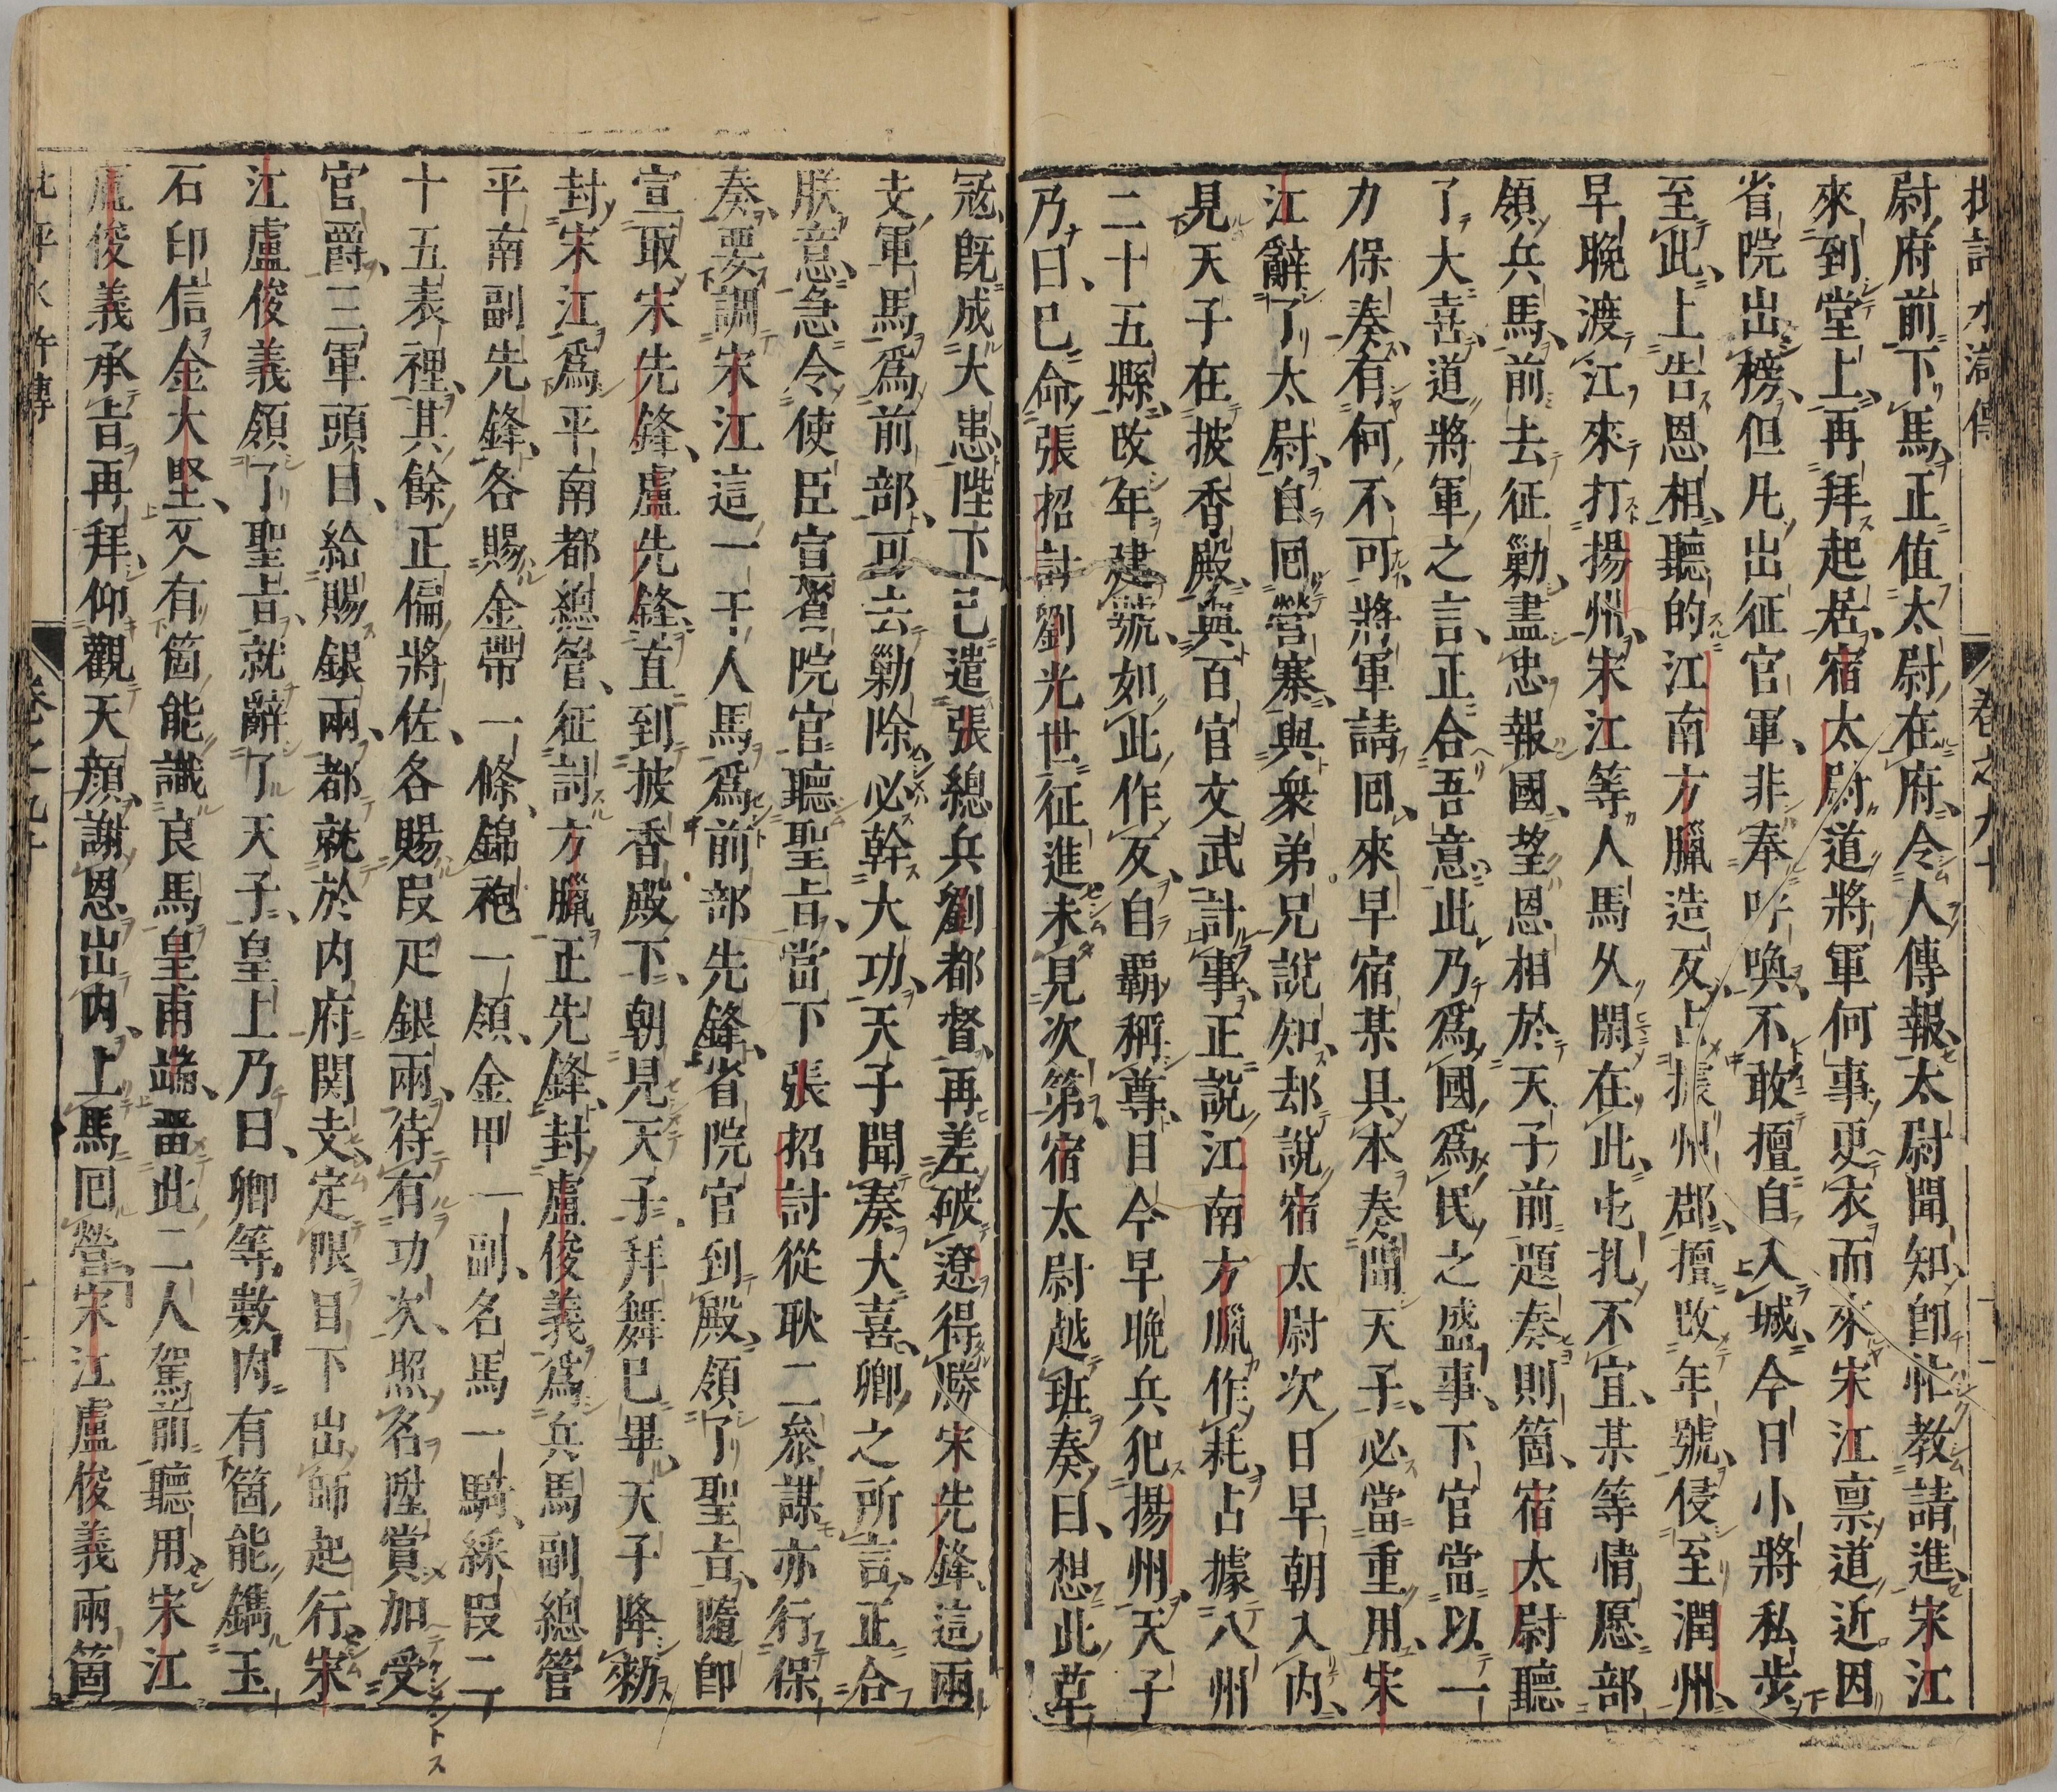 批評水滸傳 卷之九十
尉府前下馬正值太尉在府令人傳報太尉聞知卽忙教請進宋江
來到堂上再拜起居宿太尉道將軍何事更衣而來宋江禀道近因
省院出榜但凡出征官軍非奉呼喚不敢擅自入城今日小將私步
至此上告恩相聽的江南方臘造反占據州郡擅改年號侵至潤州
早晚渡江來打揚州宋江等人馬久閑在此屯扎不宜某等情愿部
領兵馬前去征勦盡忠報國望恩相於天子前題奏則箇宿太尉聽
了大喜道將軍之言正合吾意此乃爲國爲民之盛事下官當以一
力保奏有何不可將軍請囘來早宿某具本奏聞天子必當重用宋
江辭了太尉自囘營寨與衆弟兄說知却說宿太尉次日早朝入內
見天子在披香殿與百官文武計事正說江南方臘作耗占據八州
二十五縣改年建號如此作反自霸稱尊目今早晚兵犯揚州天子
乃曰已命張招討劉光世征進未見次第宿太尉越班奏曰想此草
冦旣成大患陛下已遣張總兵劉都督再差破遼得勝宋先鋒這兩
支軍馬爲前部可去勦除必幹大功天子聞奏大喜卿之所言正合
朕意急令使臣宣省院官聽聖旨當下張招討從耿二叅謀亦行保
奏要調宋江這一干人馬爲前部先鋒省院官到殿領了聖旨隨卽
宣取宋先鋒盧先鋒直到披香殿下朝見天子拜舞已畢天子降勑
封宋江爲平南都總管征討方臘正先鋒封盧俊義爲兵馬副總管
平南副先鋒各賜金帶一條錦袍一領金甲一副名馬一騎綵叚二
十五表裡其餘正偏將佐各賜叚疋銀兩待有功次照名陞賞加受
官爵三軍頭目給賜銀兩都就於内府関支定限目下出師起行宋
江盧俊義領了聖旨就辭了天子皇上乃曰卿等數内有箇能鐫玉
石印信金大堅又有箇能識良馬皇甫端畱此二人駕前聽用宋江
盧俊義承旨再拜仰觀天顏謝恩出内上馬囘營宋江盧俊義兩箇